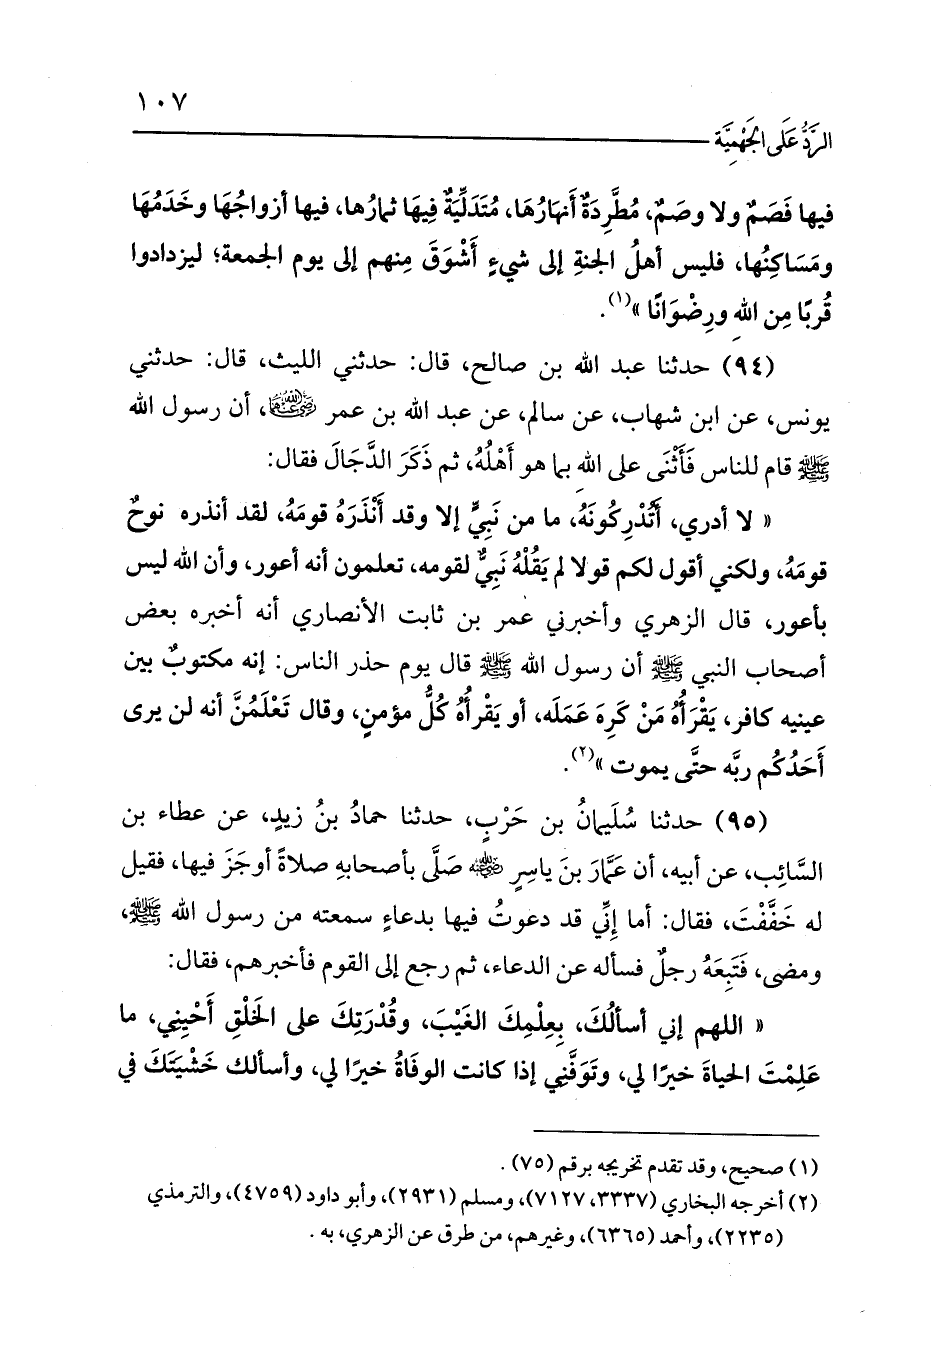 ١٠٧
الرَّدُّ عَلَى الجَهْمِيَّة
فيها فَصَمٌ ولا وصَمٌ، مُطَّرِدَةٌ أَنهَارُهَا، مُتَدَلِّيَةٌ فِيهَا ثمارُها، فيها أزواجُهَا وخَدَمُهَا
ومَسَاكِنُها، فليس أهلُ الجنةِ إلى شيءٍ أَشْوَقَ مِنهم إلى يوم الجمعة؛ ليزدادوا
قُربًا مِن اللهِ ورِضْوَانًا »(١).
(٩٤) حدثنا عبد الله بن صالح، قال: حدثني الليث، قال: حدثني
يونس، عن ابن شهاب، عن سالم، عن عبد الله بن عمر رضي الله عنهما، أن رسول الله
ﷺ قام للناس فَأَثْنَى على اللهِ بما هو أَهْلُهُ، ثم ذَكَرَ الدَّجَالَ فقال:
« لا أدري، أَتُدْرِكُونَهُ، ما من نَبِيٍّ إلا وقد أَنْذَرَهُ قومَهُ، لقد أنذره نوحٌ
قومَهُ، ولكني أقول لكم قولا لم يَقُلْهُ نَبِيٌّ لقومه، تعلمون أنه أعور، وأن الله ليس
بأعور، قال الزهري وأخبرني عمر بن ثابت الأنصاري أنه أخبره بعض
أصحاب النبي ﷺ أن رسول الله ﷺ قال يوم حذر الناس: إنه مكتوبٌ بين
عينيه كافر، يَقْرَأُهُ مَنْ كَرِهَ عَمَلَه، أو يَقْرأُهُ كُلُّ مؤمنٍ، وقال تَعْلَمُنَّ أنه لن يرى
أَحَدُكُم ربَّه حتَّى يموت »(٢).
(٩٥) حدثنا سُلَيمانُ بن حَرْبٍ، حدثنا حمادُ بنُ زيدٍ، عن عطاء بن
السَّائِب، عن أبيه، أن عَمَّارَ بنَ ياسِرٍ رضي الله عنه صَلَّى بأصحابهِ صلاةً أوجَزَ فيها، فقيل
له خَفَّفْتَ، فقال: أما إنِّي قد دعوتُ فيها بدعاءٍ سمعته من رسول الله ﷺ،
ومضى، فَتَبِعَهُ رجلٌ فسأله عن الدعاء، ثم رجع إلى القوم فأخبرهم، فقال:
« اللهم إني أسألُكَ، بِعِلْمِكَ الغَيْبَ، وقُدْرَتِكَ على الخَلْقِ أَحْيِنِي، ما
عَلِمْتَ الحياةَ خيرًا لي، وتَوَفَّنِي إذا كانت الوفَاةُ خيرًا لي، وأسألك خَشْيَتَكَ في
(١) صحيح، وقد تقدم تخريجه برقم (٧٥) .
(٢) أخرجه البخاري (٣٣٣٧، ٧١٢٧)، ومسلم (٢٩٣١)، وأبو داود (٤٧٥٩)، والترمذي
(٢٢٣٥)، وأحمد (٦٣٦٥)، وغيرهم، من طرق عن الزهري، به .